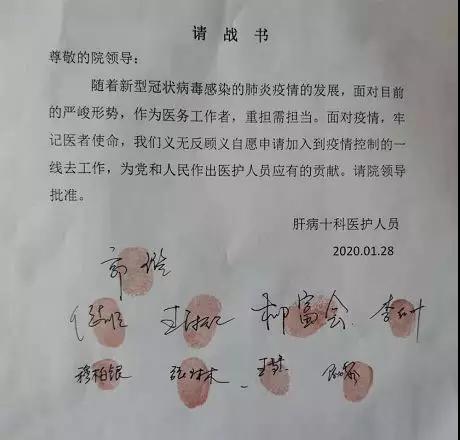 请战书
尊敬的院领导：
随着新型冠状病毒感染的肺炎疫情的发展，面对目前
的严峻形势，作为医务工作者，重担需担当。面对疫情，牢
记医者使命，我们义无反顾义自愿申请加入到疫情控制的一
线去工作，为党和人民作出医护人员应有的贡献。请院领导
批准。
肝病十科医护人员
2020.01.28
柳富会
穆柏银 王慧